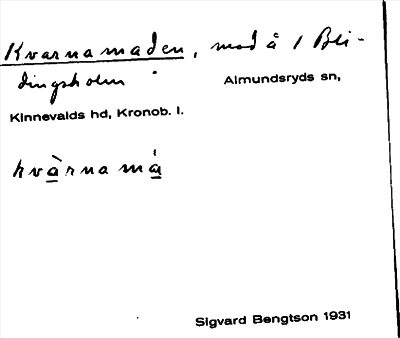 Kvarnamaden, mad å 1 Bli-
dingsholm
Almundsryds sn,
Kinnevalds hd, Kronob. l.
kvàrnamá
Sigvard Bengtson 1931